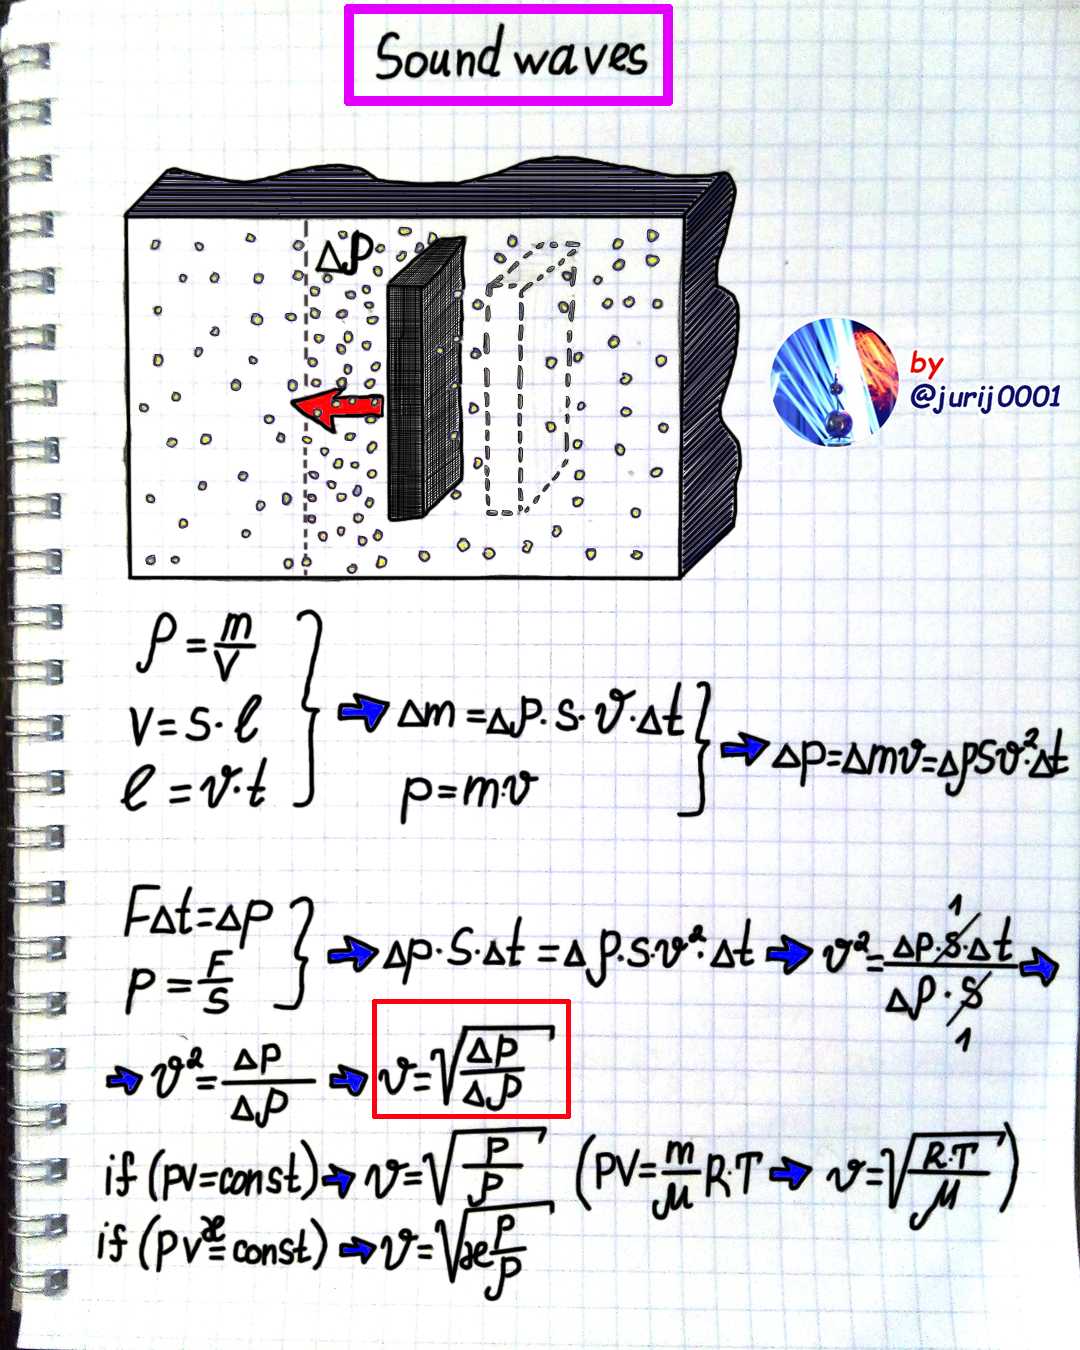 Sound waves
Δρ
by
@jurij0001
ρ = m/V
V = S · ℓ
ℓ = v · t
Δm = Δρ · S · v · Δt
p = m · v
Δp = Δmv = ΔρSv² · Δt
FΔt = Δp
P = F/S
Δp · S · Δt = Δρ · S · v² · Δt
v² = Δp · S · Δt / Δρ · S
1
1
v² = ΔP/Δρ
v = √(ΔP/Δρ)
if (PV = const) v = √(P/ρ) (PV = m/μ R · T v = √(R · T/μ))
if (PV^æ = const) v = √(æ P/ρ)